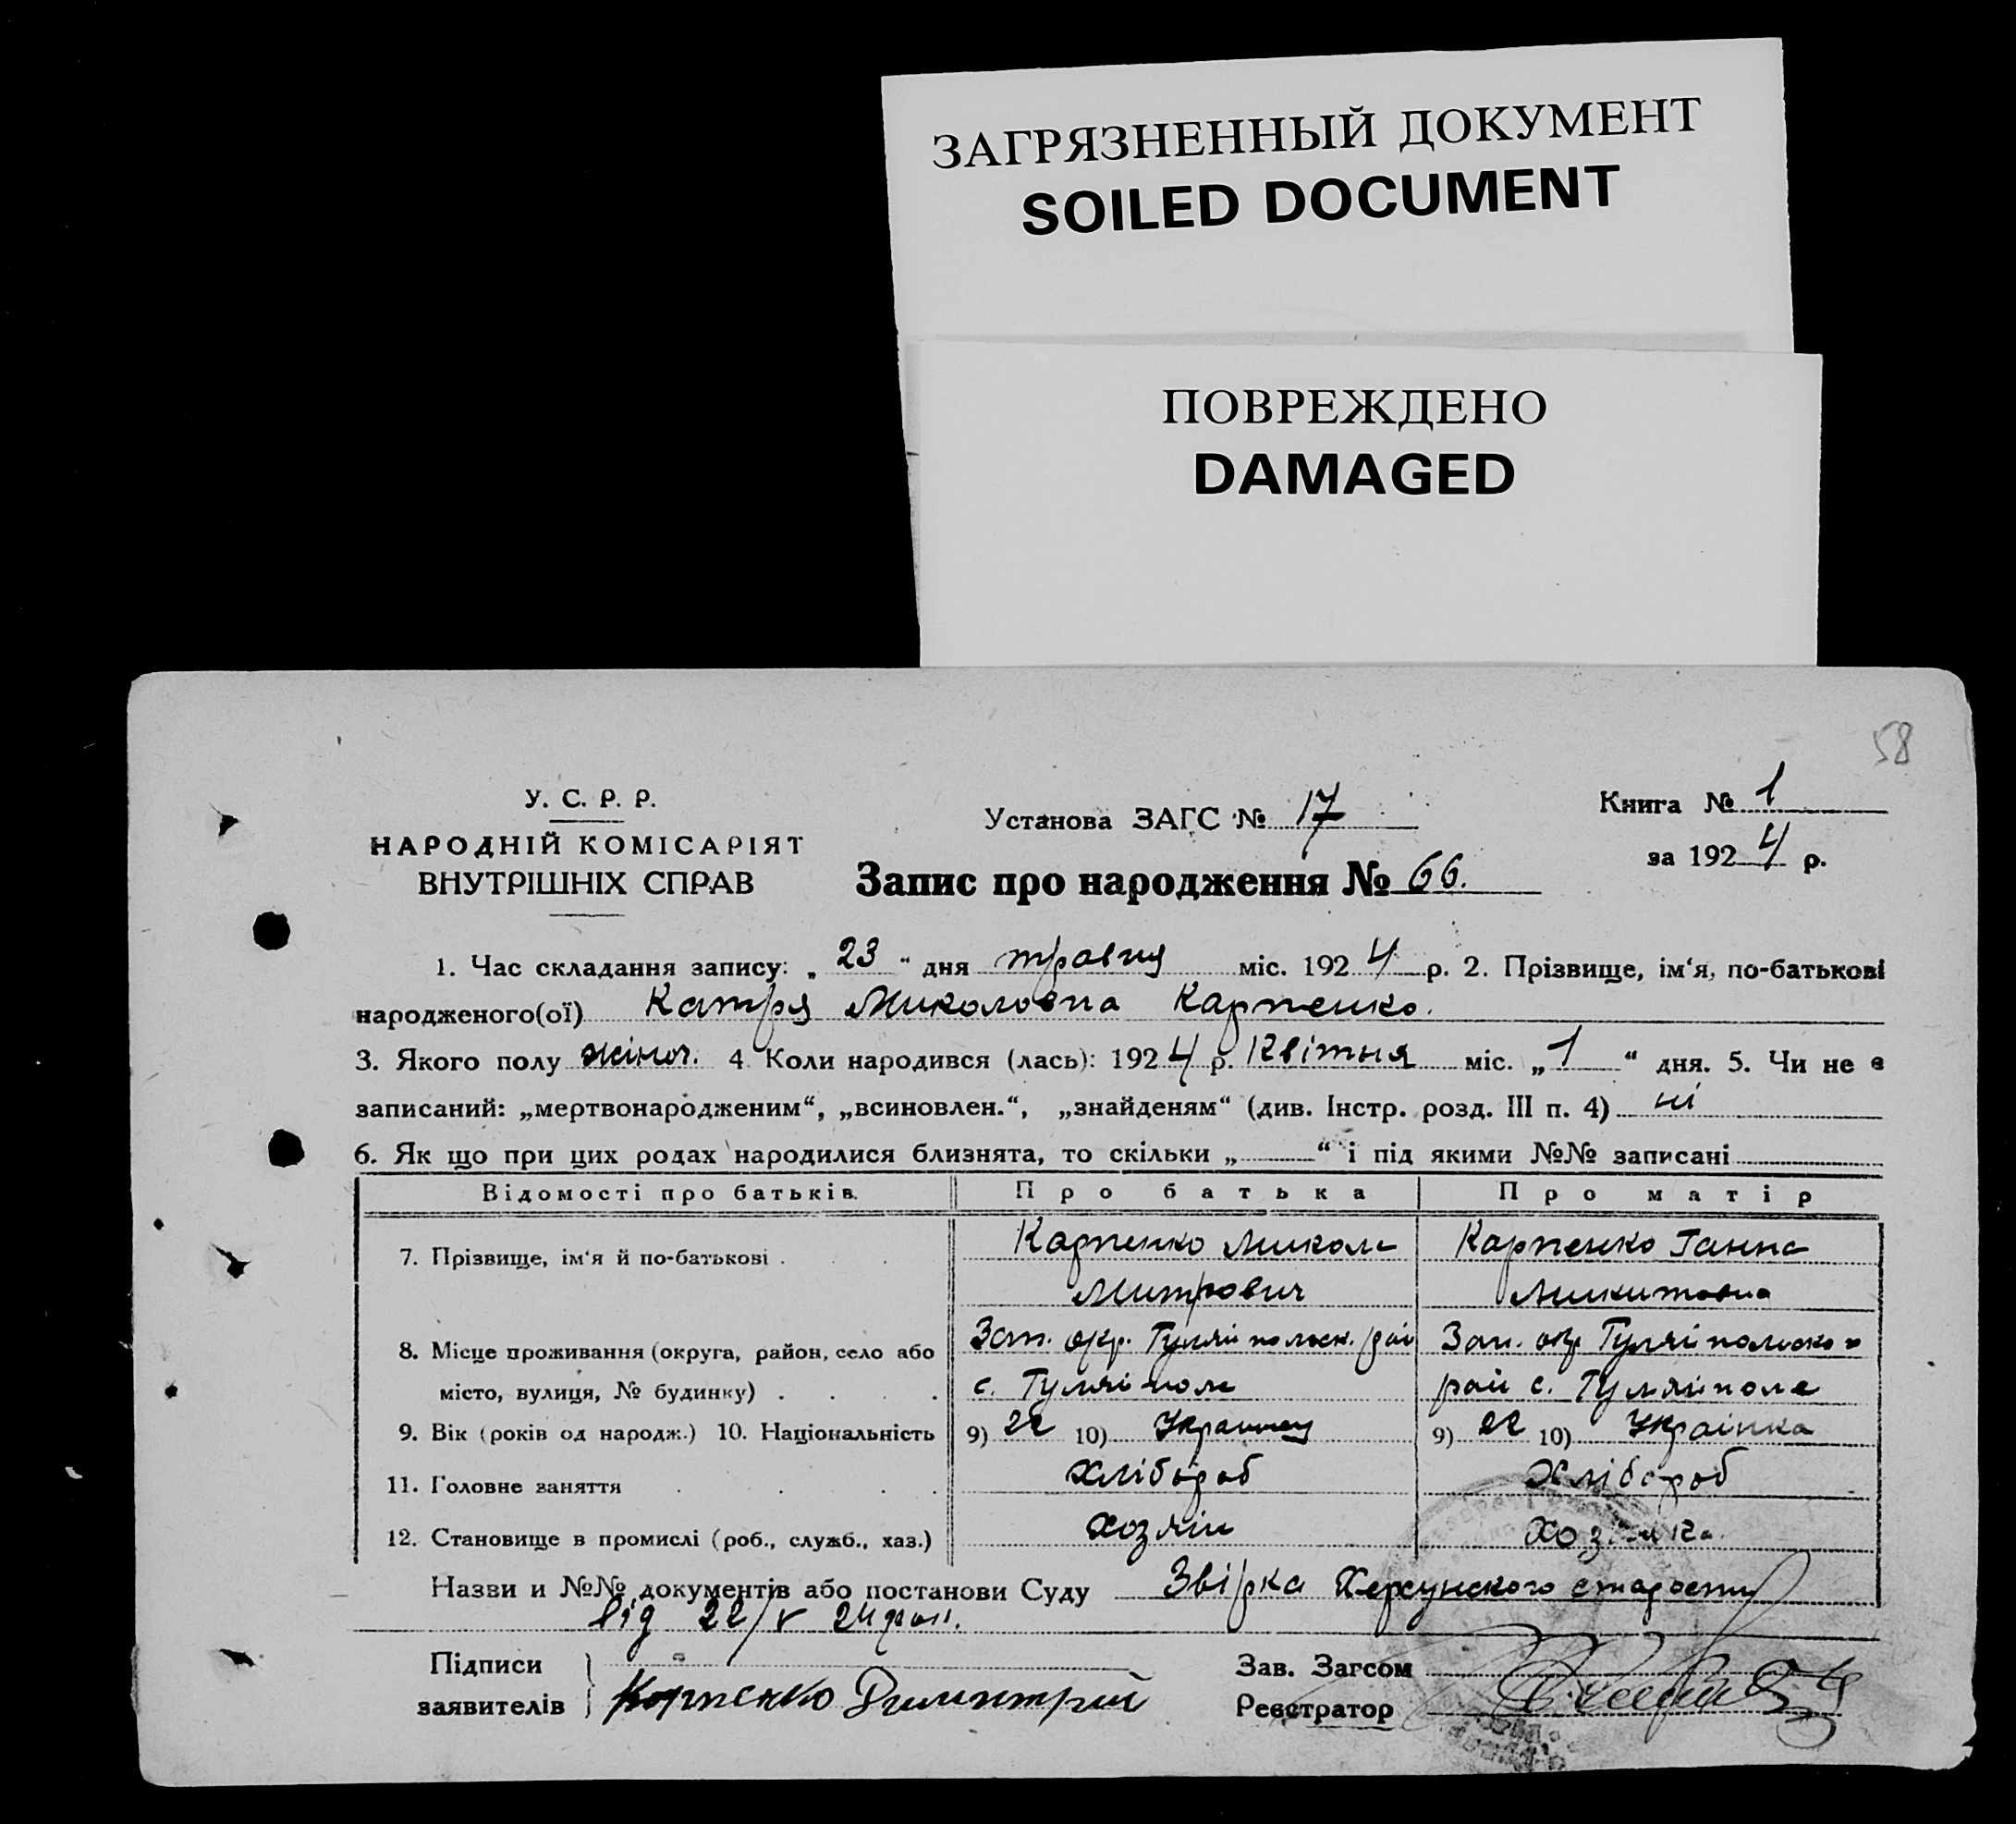 ЗАГРЯЗНЕННЫЙ ДОКУМЕНТ
SOILED DOCUMENT
ПОВРЕЖДЕНО
DAMAGED
58
У. С. Р. Р.
НАРОДНІЙ КОМІСАРІЯТ
ВНУТРІШНІХ СПРАВ
Установа ЗАГС № 17
Запис про народження № 66.
Книга № 1
за 1924 р.
1. Час складання запису: „ 23 “ дня травня міс. 1924 р. 2. Прізвище, ім‘я, по-батькові
народженого(ої) Катря Миколовна Карпенко.
3. Якого полу жіноч. 4 Коли народився (лась): 1924 р. Квітня міс. „ 1 “ дня. 5. Чи не є
записаний: „мертвонародженим“, „всиновлен.“, „знайденям“ (див. Інстр. розд. III п. 4) ні
6. Як що при цих родах народилися близнята, то скільки „ “ і під якими №№ записані
Відомості про батьків. Про батька Про матір
7. Прізвище, ім‘я й по-батькові . Карпенко Микола Карпенко Ганна
Митрович Микитовна
8. Місце проживання (округа, район, село або Зап. окр. Гуляйпольск. рай Зап. окр Гуляйпольско
місто, вулиця, № будинку) . . . . с. Гуляйполе рай с. Гуляйполе
9. Вік (років од народж.) 10. Національність 9) 22 10) Украинец 9) 22 10) Украінка
11. Головне заняття . . . . Хлібороб Хлібороб
12. Становище в промислі (роб., служб., хаз.) Хозяін Хозяйка
Назви и №№ документів або постанови Суду Звірка Херсунского старости
від 22/V 24 рок.
Підписи
заявителів Карпенко Димитрий
Зав. Загсом
Реєстратор